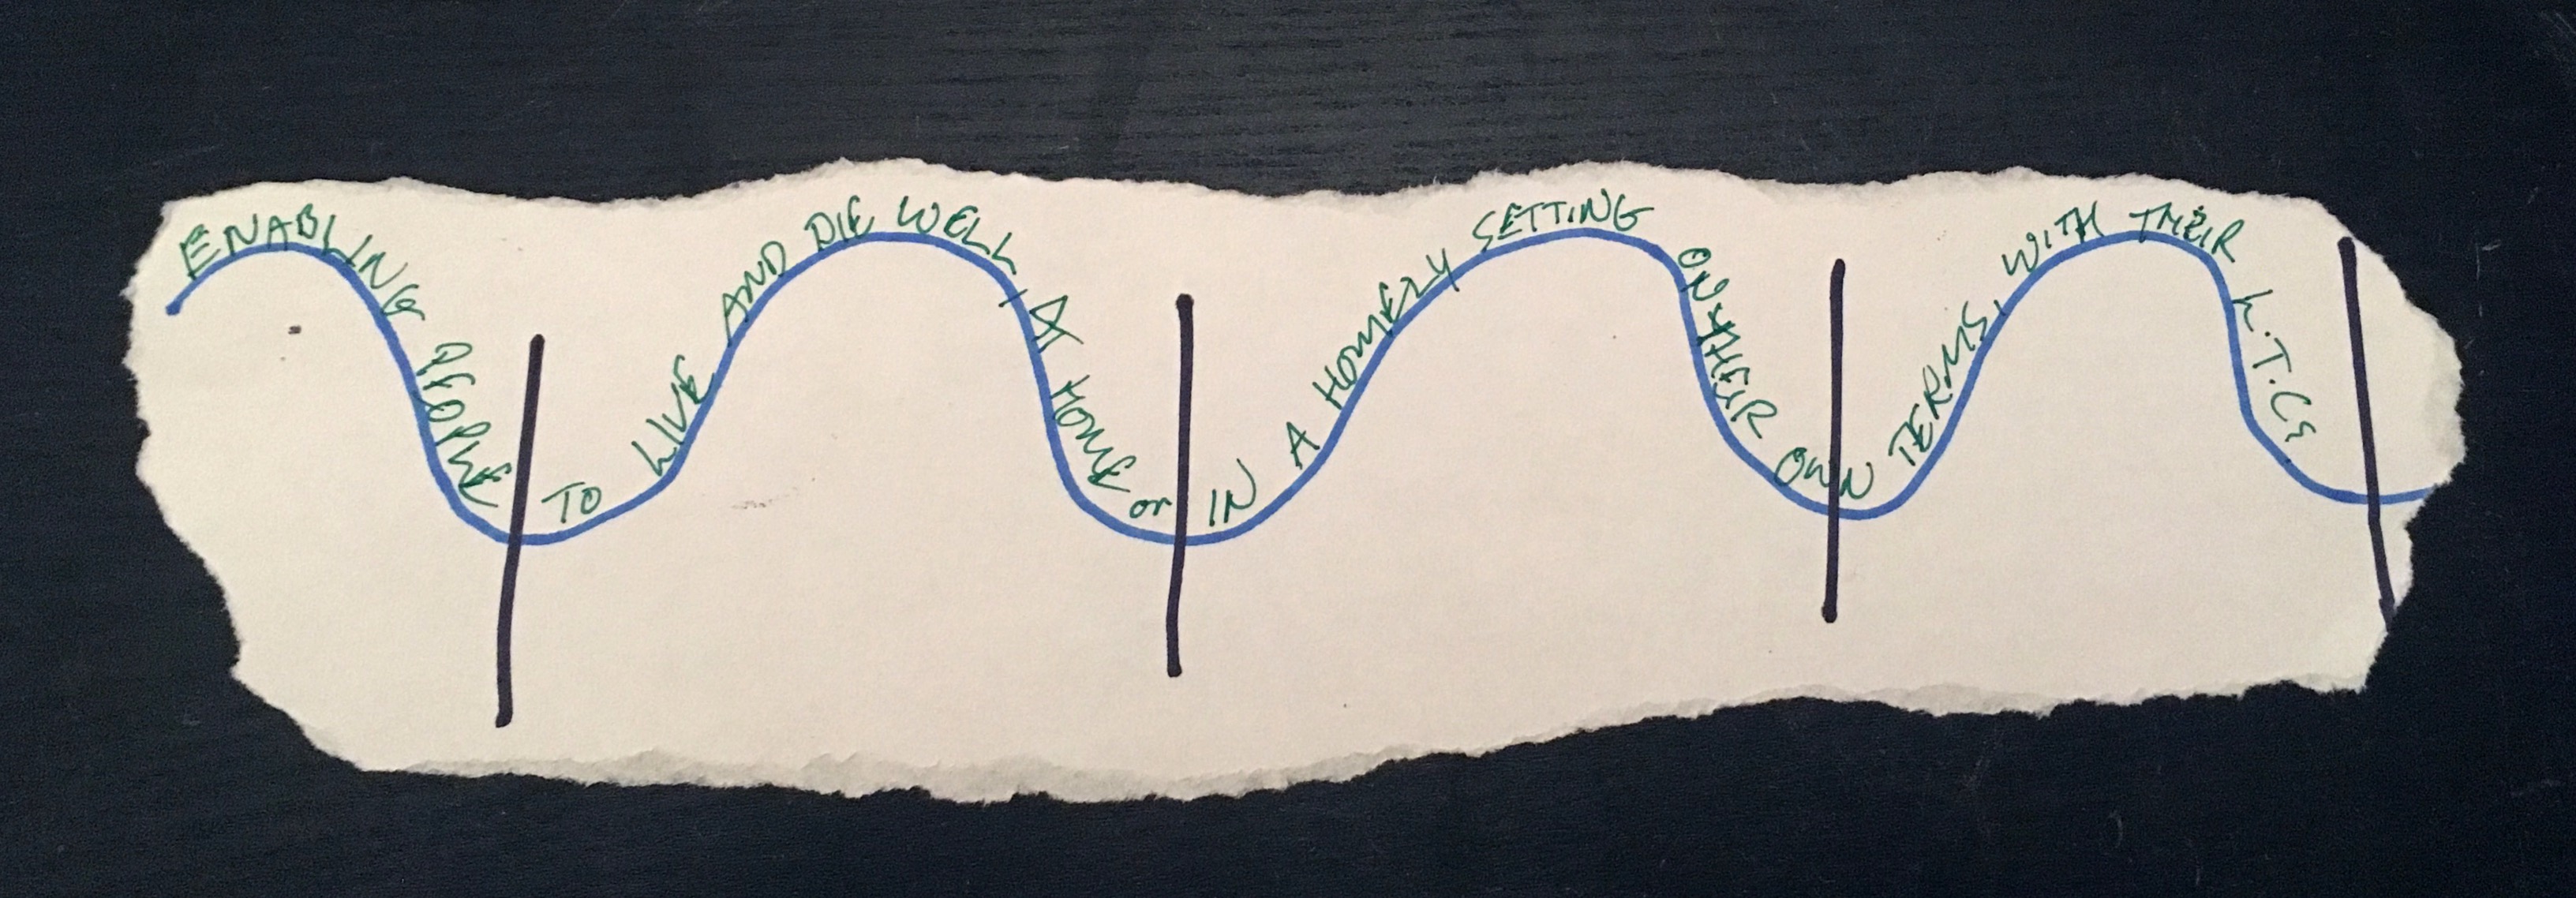 ENABLING PEOPLE TO LIVE AND DIE WELL, At HOME or IN A HOMELY SETTING ON THEIR OWN TERMS, WITH THEIR L.T.Cs